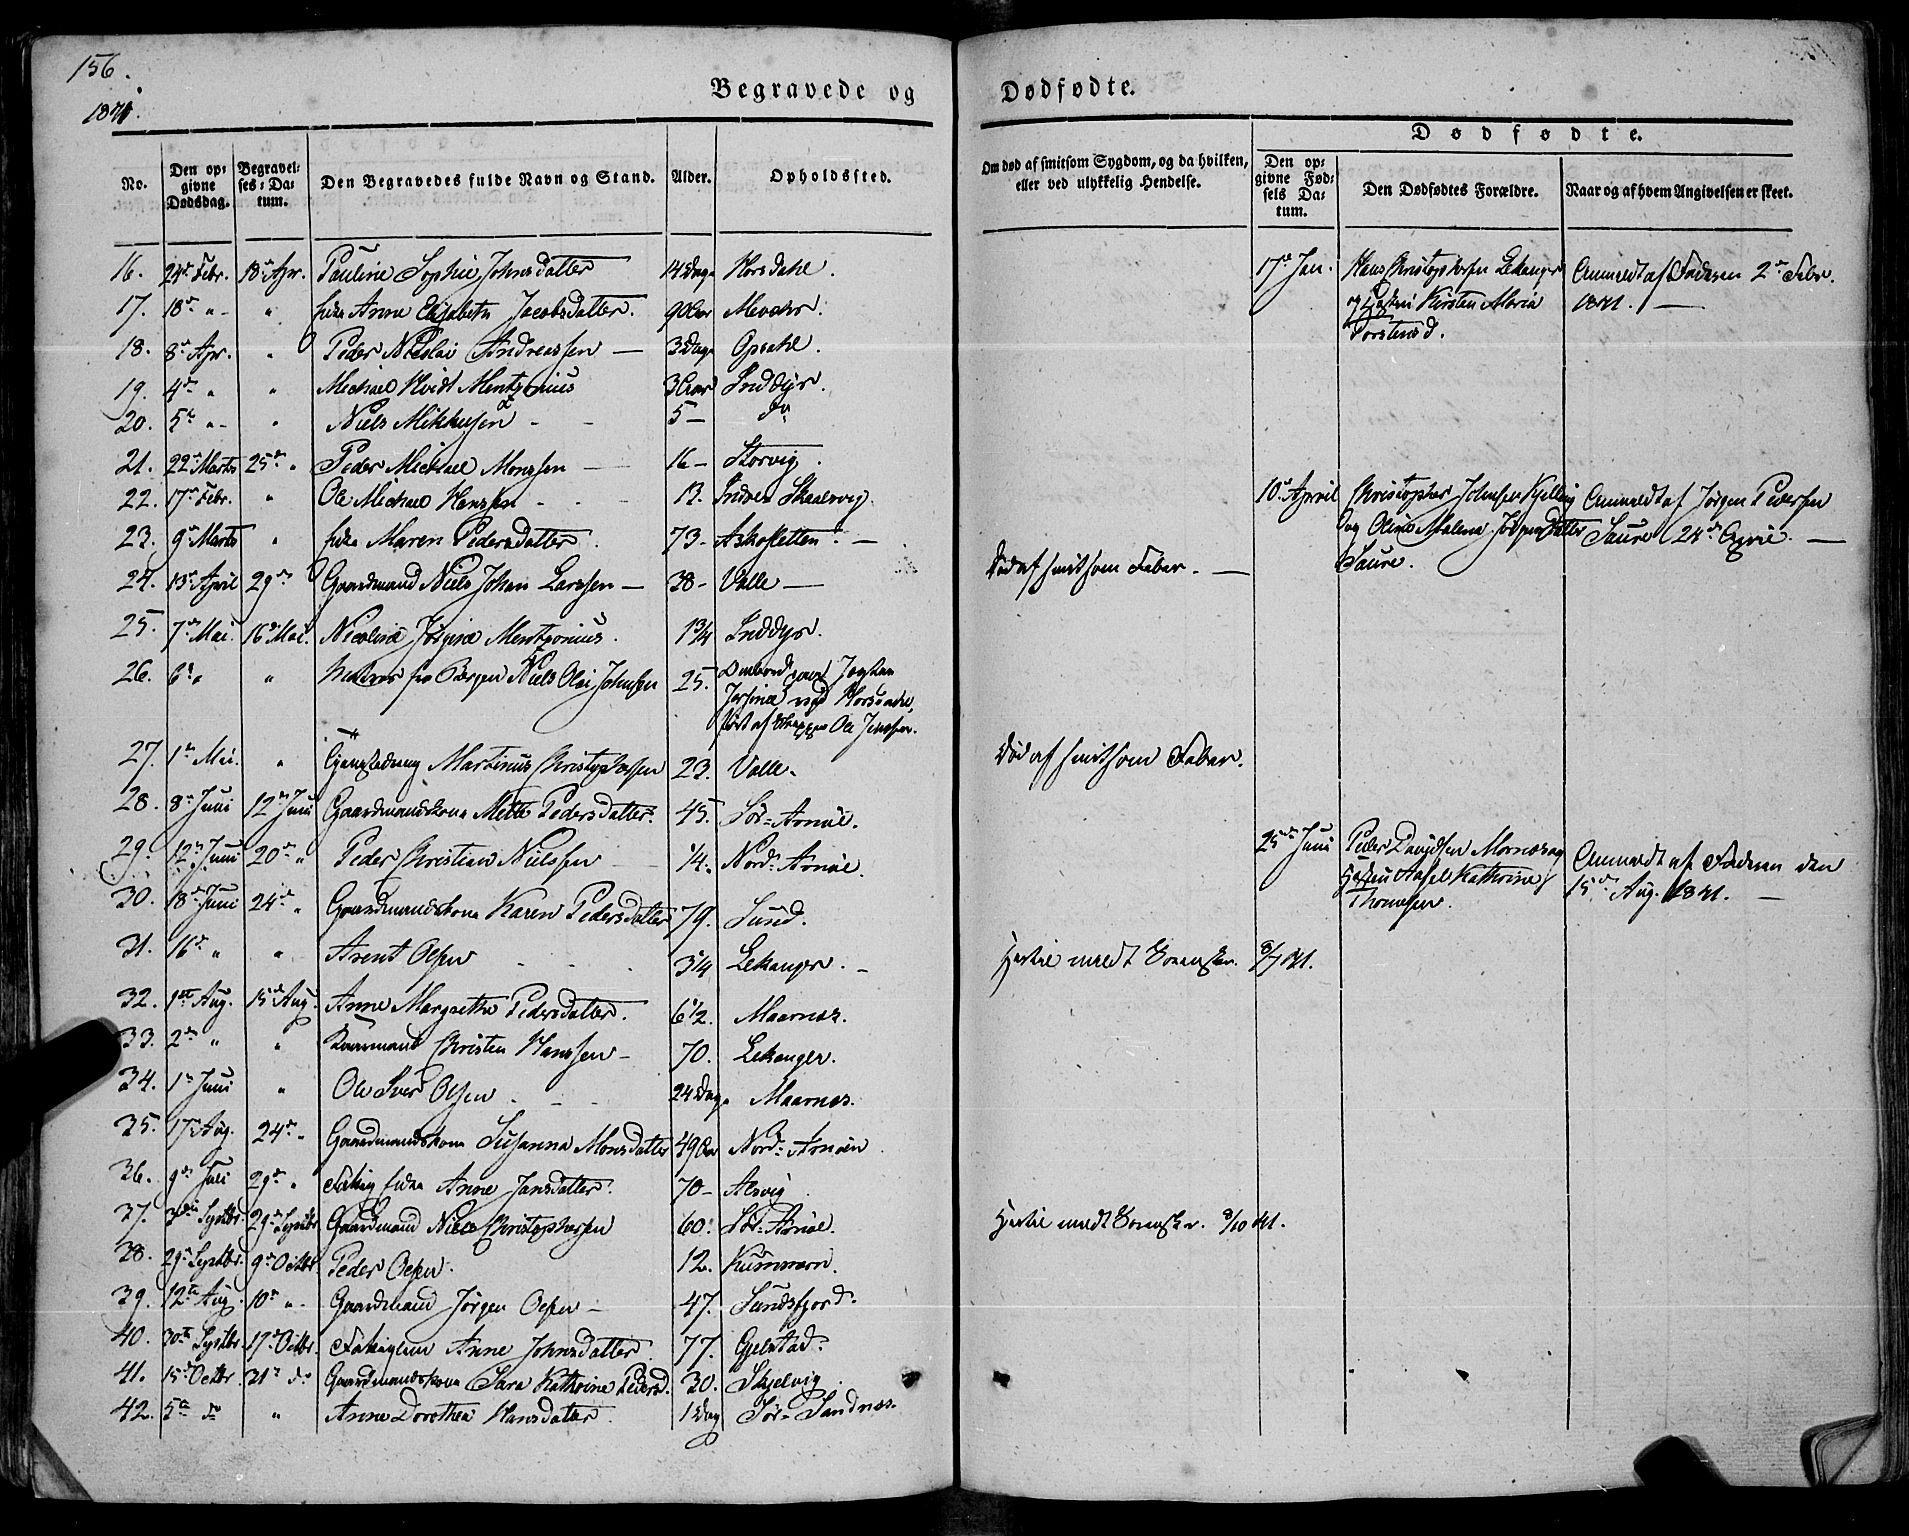 156.
1841.
Begravede og Dødfødte.
No.
Den opgivne Dødsdag.
Begravelses-Datum.
Den Begravedes fulde Navn og Stand.
Alder.
Opholdssted.
Om død af smitsom Sygdom, og da hvilken, eller ved ulykkelig Hendelse.
Dødfødte.
Den opgivne Fødsels Datum.
Den Dødfødtes Forældre.
Naar og af hvem Angivelsen er skeet.
16. 24de Febr. 18de Apr. Pauline Sophie Johnsdatter 14 Dage Horsdahl.
17. 18de " " Anne Elisabeth Jacobsdatter. 90 Aar Mevær.
18. 8de Apr. " Peder Nicolai Andreassen — 3 Dage Opsahl.
19. 4de " " Michael Hvidt Mentzonius 3 Aar Inddyr.
20. 5te " " Niels Mikkelsen 5 — do
21. 22de Marts 25de " Peder Michael Monssen 16 — Storvig.
22. 17de Febr. " Ole Michael Hanssen 13. Indre Skaalvig.
23. 9de Marts " Maren Pedersdatter. 73 — Askesletten. —
24. 13de April 29de Gaardmand Niels Johan Larssen — 38 — Valle —
25. 7de Mai. 16de Mai. Nicoline Jørgine Mentzonius. 1 3/4 Inddyr.
26. 6te " " fra Bergen Niels Olai Johnsen 25. Ombord paa Jagten
ved Horsdahl,
ført af Skipper Ole Jenssen.
27. 1ste Mai. " Martinus Christophersen 23. Valle.
28. 8de Juni 12te Juni Gaardmandskone Mette Pedersdatter. 45. Sør-Arnøe.
29. 12te Juni 20de " Peder Christian Nielssen 1/4. Nord-Arnøe.
30. 18de Juni 24de " Gaardmandskone Karen Pedersdatter 79. Sund.
31. 16de " " Arent Olsen 3 1/4 Lekanger. —
32. 1ste Aug. 15de Aug. Anne Margrethe Pedersdatter. 6 1/2. Maarnes.
33. 2den " " Christen Hanssen — 70. Lekanger.
34. 1ste Juni " Ole Iver Olsen 24 Dage Maarnes.
35. 17de Aug. 24de " Gaardmandskone Susanna Monsdatter 49 Aar Nord-Arnøen
36. 9de Juli 29de " Anne Jansdatter. 70 — Alsvig
37. 3die Septbr. 29de Septbr Gaardmand Niels Christophersen 60. Sør-Arnøe.
38. 29de Septbr. 9de Octbr. Peder Olsen. 12.
39. 12te Aug. 10de " Gaardmand Jørgen Olsen — 47. Sundsfjord.
40. 30te Septbr. 17de Octbr. Anne Johnsdatter 77. Gjelstad.
41. 15de Octbr. 31te do Gaardmandskone Sara Kathrine Pedersd. 30. Skjelvig.
42. 5te do " Anne Dorothea Hansdatter. 1 Dag Sør-Sandnes.
Død af smitsom Feber. —
Død af smitsom Feber.
Hertil meldt 8/7 41.
Hertil meldt 8/10 41.
17de Jan. Hans Christophersen Lekanger Anmeldt af Faderen 2den Febr.
og Hustru Kirsten Maria 1841. —
Torstensd.
10de April Christopher Johnsen Kjelling Anmeldt af Jørgen Pedersen
og Oline Malena Jørgensdatter Saure 24de April. —
Saure.
25de Juni Peder Davidsen Mornæs og Anmeldt af Faderen den
Hustru Kathrine 15de Aug. 1841. —
Thomesen.